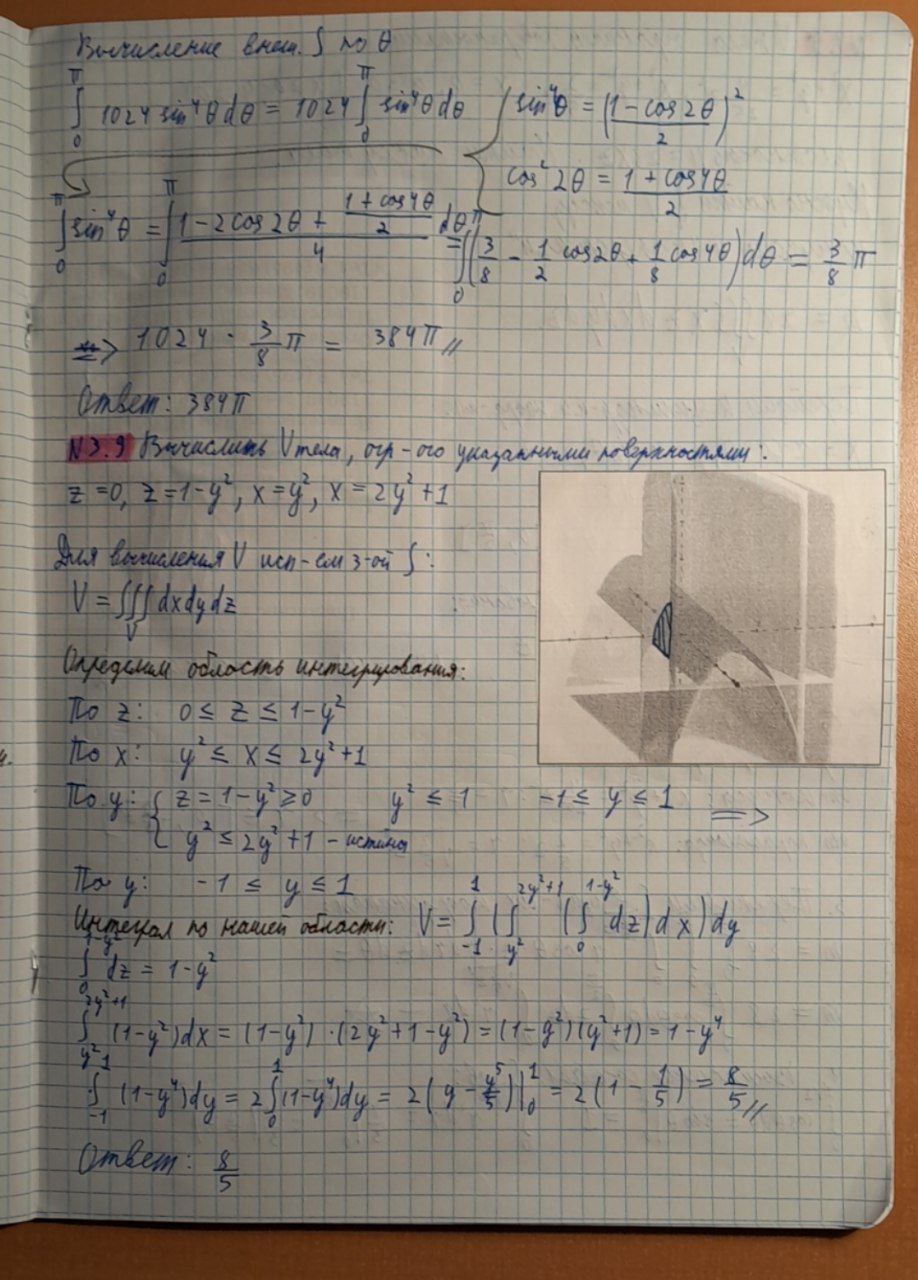 Вычисление внеш. ∫ по θ
∫₀^π 1024 sin⁴θ dθ = 1024 ∫₀^π sin⁴θ dθ { sin⁴θ = ((1 - cos 2θ)/2)²
cos² 2θ = (1 + cos 4θ)/2
∫₀^π sin⁴θ = ∫₀^π (1 - 2 cos 2θ + (1 + cos 4θ)/2)/4 dθ = ∫₀^π (3/8 - 1/2 cos 2θ + 1/8 cos 4θ) dθ = 3/8 π
=> 1024 · 3/8 π = 384π //
Ответ: 384π
N3.9 Вычислить V тела, огр-ого указанными поверхностями:
z = 0, z = 1 - y², x = y², x = 2y² + 1
Для вычисления V исп-ем 3-ой ∫:
V = ∭_V dx dy dz
Определим область интегрирования:
По z: 0 ≤ z ≤ 1 - y²
По x: y² ≤ x ≤ 2y² + 1
По y: { z = 1 - y² ≥ 0 y² ≤ 1 -1 ≤ y ≤ 1 =>
y² ≤ 2y² + 1 - истина
По y: -1 ≤ y ≤ 1
Интеграл по нашей области: V = ∫₋₁^1 (∫_{y²}^{2y²+1} (∫₀^{1-y²} dz) dx) dy
∫₀^{1-y²} dz = 1 - y²
∫_{y²}^{2y²+1} (1 - y²) dx = (1 - y²) · (2y² + 1 - y²) = (1 - y²)(y² + 1) = 1 - y⁴
∫₋₁^1 (1 - y⁴) dy = 2 ∫₀^1 (1 - y⁴) dy = 2 (y - y⁵/5)|₀^1 = 2 (1 - 1/5) = 8/5 //
Ответ: 8/5